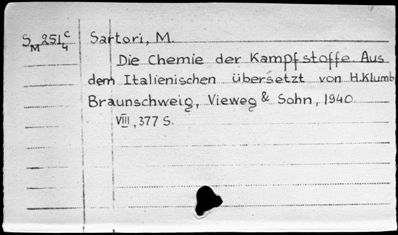 S M 251 c/4 Sartori, M.
Die Chemie der Kampfstoffe. Aus
dem Italienischen übersetzt von H.Klumb
Braunschweig, Vieweg & Sohn, 1940
VIII, 377 S.